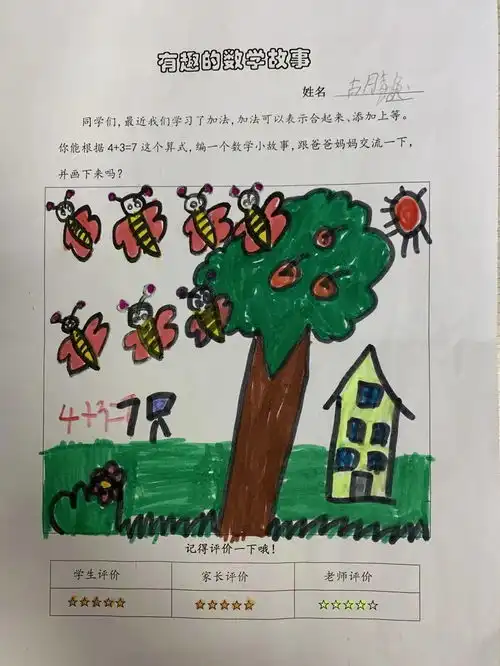 有趣的数学故事
姓名
同学们，最近我们学习了加法，加法可以表示合起来、添加上等。
你能根据 4+3=7 这个算式，编一个数学小故事，跟爸爸妈妈交流一下，
并画下来吗？
4+3=7只
记得评价一下哦！
学生评价 家长评价 老师评价
☆☆☆☆☆ ☆☆☆☆☆ ☆☆☆☆☆